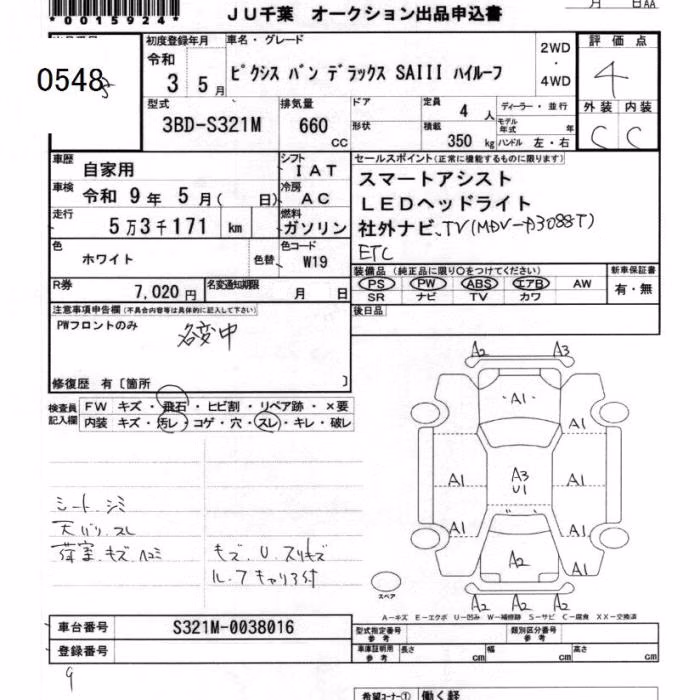 *0015924*
JU千葉 オークション出品申込書
月 日AA
0548
初度登録年月
令和
3 5月
車名・グレード
ピクシス バン デラックス SAIII ハイルーフ
2WD
・
4WD
評価点
4
型式
3BD-S321M
排気量
660
CC
ドア
形状
定員 4 人
積載 350 kg
ディーラー・並行
モデル年式 年
ハンドル 左・右
外装 内装
C C
車歴
自家用
シフト
IAT
セールスポイント(正常に機能するものに限ります)
スマートアシスト
LEDヘッドライト
社外ナビ、TV(MDV-D3088T)
ETC
車検 令和 9年 5月( 日)
冷房
AC
走行
5万3千171 km
燃料
ガソリン
色
ホワイト
色替
色コード
W19
装備品 (純正品に限り○をつけてください)
PS PW ABS エアB AW
SR ナビ TV カワ
新車保証書
有・無
R券
7,020円
名変通知期限
月 日
後日品
注意事項申告欄(不具合内容等は具体的に記入して下さい)
PWフロントのみ
名変中
修復歴 有〔箇所 〕
検査員
記入欄
FW キズ・飛石・ヒビ割・リペア跡・×要
内装 キズ・汚レ・コゲ・穴・スレ・キレ・破レ
シート シミ
天バリ スレ
荷室 キズ ヘコミ
キズ、U、スリキズ
ルーフキャリア付
A2 A3
A1
A1
A1
A3
U1
A1
A1
A1
A2
A1
A2 A2 A2
スペア
A-キズ E-エクボ U-凹み W-補修跡 S-サビ C-腐食 XX-交換済
車台番号
S321M-0038016
登録番号
型式指定番号
参考
類別区分番号
参考
車庫証明用
参考
長さ cm
幅 cm
高さ cm
9
希望コーナー① 働く軽